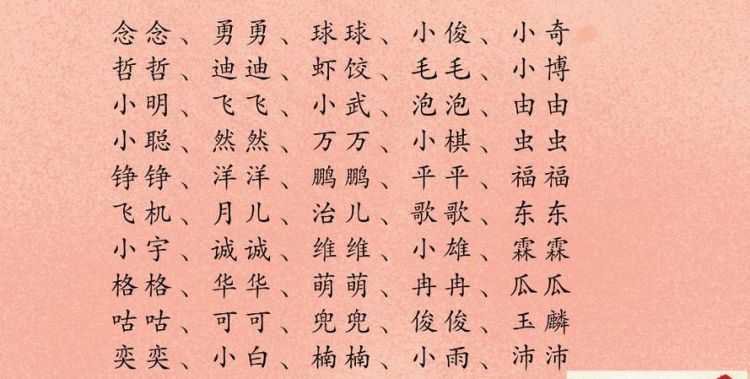 念念、勇勇、球球、小俊、小奇
哲哲、迪迪、虾饺、毛毛、小博
小明、飞飞、小武、泡泡、由由
小聪、然然、万万、小棋、虫虫
铮铮、洋洋、鹏鹏、平平、福福
飞机、月儿、治儿、歌歌、东东
小宇、诚诚、维维、小雄、霖霖
格格、华华、萌萌、冉冉、瓜瓜
咕咕、可可、兜兜、俊俊、玉麟
奕奕、小白、楠楠、小雨、沛沛